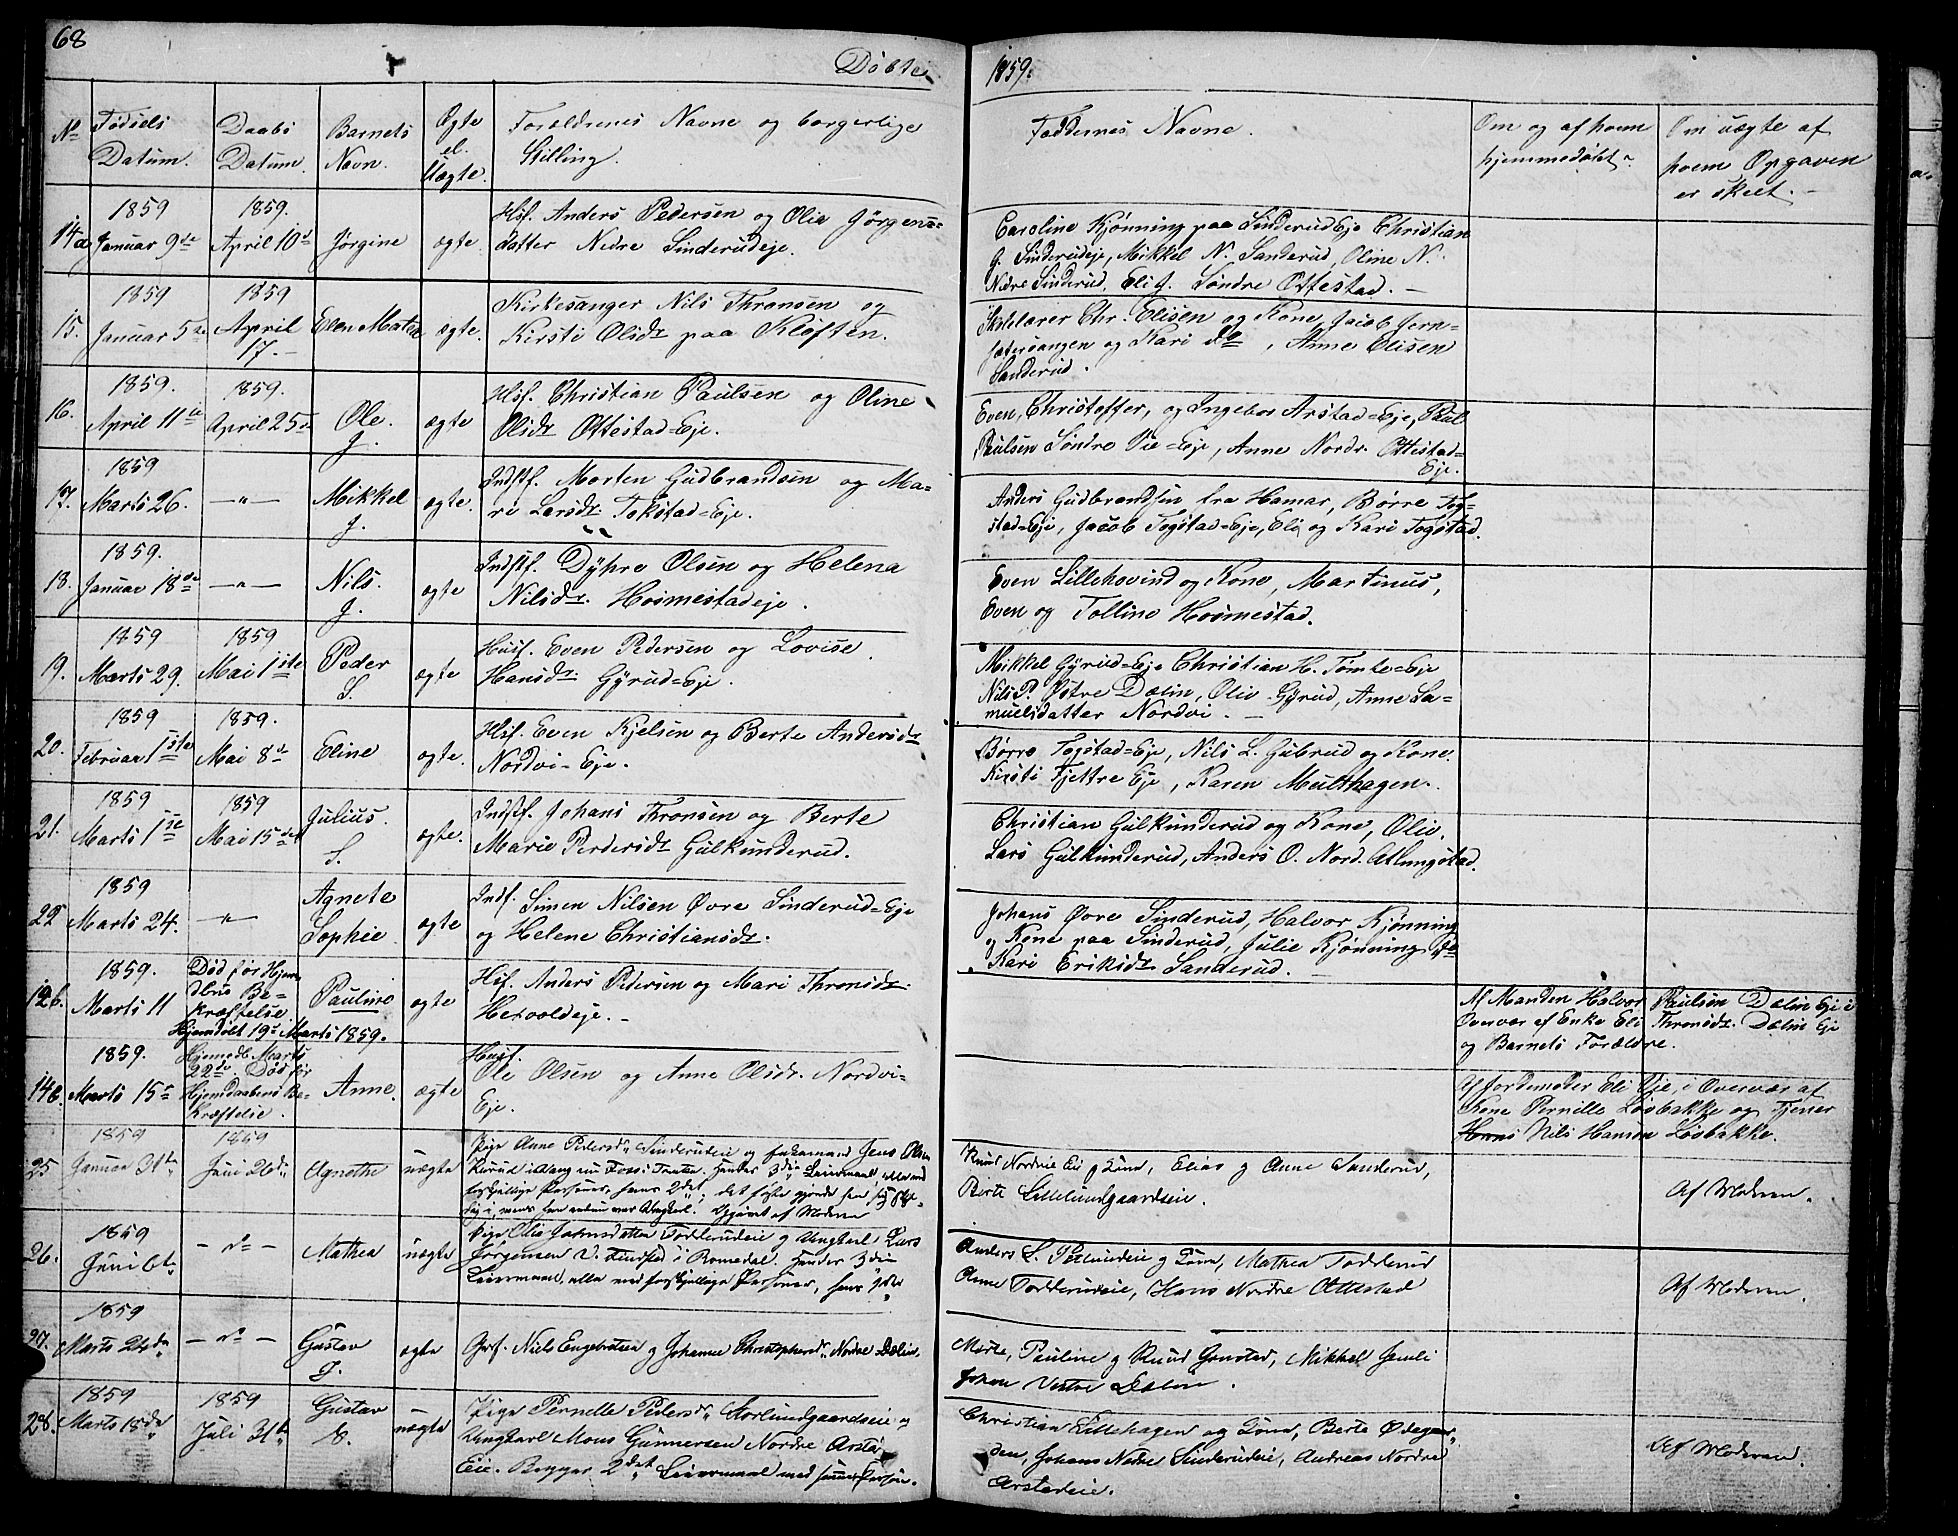 68
Døbte
1859.
No
Fødsels Datum.
Daabs Datum.
Barnets Navn.
Ægte el. Uægte.
Forældrenes Navne og borgerlige Stilling.
Faddernes Navne.
Om og af hvem hjemmedøbt.
Om uægte af hvem Opgaven er skeet.
14a
1859 Januar 9de
1859. April 10d
Jørgine
ægte.
Hsf. Anders Pedersen og Olia Jørgens=
datter Nedre Sinderudeje.
Caroline Kjønning paa SinderudEje Christian
G. Sinderudeje, Mikkel N. Sanderud, Oline N.
Nedre Sinderud, Eli J. Søndre Ottestad. —
15.
1859 Januar 5te
1859 April 17. —
Elen Mathea
ægte.
Kirkesanger Nils Thronsen og
Kirsti Olsdr paa Kløften.
Skolelærer Chr. Elisen og Kone, Jacob Jern-
sætersangen og Kari do, Anne Elisen
Sanderud.
16.
1859. April 11te
1859. April 25de
Ole. J.
ægte
Hsf. Christian Paulsen og Oline
Olsdr Ottestad=Eje.
Even, Christoffer, og Ingebor Arstad=Eje, Paul
Paulsen Søndre Vie=Eje, Anne Nordr. Ottestad=
Eje.
17.
1859 Marts 26.
—"—
Mikkel J.
ægte.
Indstf. Morten Gudbrandsen og Ma=
ri Larsdr Tokstad=Eje.
Anders Gudbrandsen fra Hamar, Børre Tog-
stad=Eje, Jacob Togstad=Eje, Eli og Kari Togstad.
18.
1859. Januar 18de
—"—
Nils. J.
ægte
Indstf. Dyhre Olsen og Helena
Nilsdr. Hosmestadeje.
Even Lillehovind og Kone, Martinus,
Even og Tolline Hosmestad.
19.
1859 Marts 29.
1859 Mai 1ste
Peder S.
ægte
Husf. Even Pedersen og Lovise
Hansdr. Gyrud=Eje.
Mikkel Gyrud=Eje Christian H. Tømte=Eje
Nils P. Østre Dælin, Oliv Gyrud, Anne Sa-
muelsdatter Nordvi. —
20.
1859 Februar 1ste
1859. Mai 8de
Eline
ægte.
Hsf. Even Kjelsen og Berte Andersdr
Nordvi-Eje.
Børre Togstad=Eje, Nils L. Gubrud og Kone.
Kirsti Fjettre Eje, Karen Multhagen.
21.
1859 Marts 1ste
1859 Mai 15de
Julius. S.
ægte.
Indstf. Johans Thronsen og Berte
Marie Perdersdr Gulkunderud.
Christian Gulkunderud og Kone, Oliv.
Lars Gulkunderud, Anders O. Nord. Atlungstad.
22
1859 Marts 24.
—"—
Agnete Sophie
ægte
Indf. Simen Nilsen Øvre Sinderud=Eje
og Helene Christiansdr.
Johans Øvre Sinderud, Halvor Kjønning
og Kone paa Sinderud, Julie Kjønning do
Kari Eriksdr Sanderud. —
12b.
1859. Marts 11
Død før Hjem-
døbts Be-
kræftelse
Hjemdøbt 19de Marts 1859.
Pauline
ægte
Hsf. Anders Pedersen og Mari Thronsdr.
Hervoldeje. —
Af Manden Halvor Paulsen Dælin Eje i
Overvær af Enke Eli Thronsdr. Dælin Eje
og Barnets Forældre.
14b.
1859. Marts 15de
Hjemmedb. Marts
22de. Død før
Hjemdaabens Be-
kræftelse.
Anne.
ægte
Husf.
Ole Olsen og Anne Olsdr. Nordvi-
Eje.
Af Jordemoder Eli Vje, i Overvær af
Kone Pernille Løsbakke og Tjener
Hans Nils Hansen Løsbakke.
25
1859 Januar 31te
1859 Juni 26de
Agnethe
uægte
Pige Anne Pedersdr Sinderudeie og Enkemand Jens Olsen
Hendes 3die Leiermaal, alle med
forskjellige Personer, hans 2det; det første gjorde han sig skyl-
dig i, mens han endnu var Ungkarl. Opgivet af Moderen
Knud Nordvie Eie og Kone, Elias og Anne Sanderud,
Berte Lillelundgaardseie.
Af Moderen.
26.
1859 Juni 6te
— do —
Mathea
uægte
Pige Olia Johnsdatter Todderudeie og Ungkarl Lars
Jørgensen V. i Romedal. Hendes 3die
Leiermaal, alle med forskjellige Personer, hans 1ste
Anders L. og Kone, Mathea Todderud
Anne Todderudeie, Hans Nordre Ottestad
Af Moderen.
27.
1859 Marts 24de
— do —
Gustav J.
ægte
Niels Engebretsen og Johanne Christophersdr Nordre Dælin.
Marte, Pauline og Knud Grustad, Mikkel Jemli
Johan Vestre Dælin.
28.
1859 Marts 18de
1859 Juli 31te
Gustav S.
uægte
Pige Pernelle Pedersdr Storlundgaardseie og
Ungkarl Mons Gunnersen Nordre Arstad
Eie. Begges 2det Leiermaal med samme Person.
Christian Lillehagen og Kone, Berte Ødegaar-
den, Johans Nedre Sinderudeie, Andreas Nordre
Arstadeie.
Af Moderen.